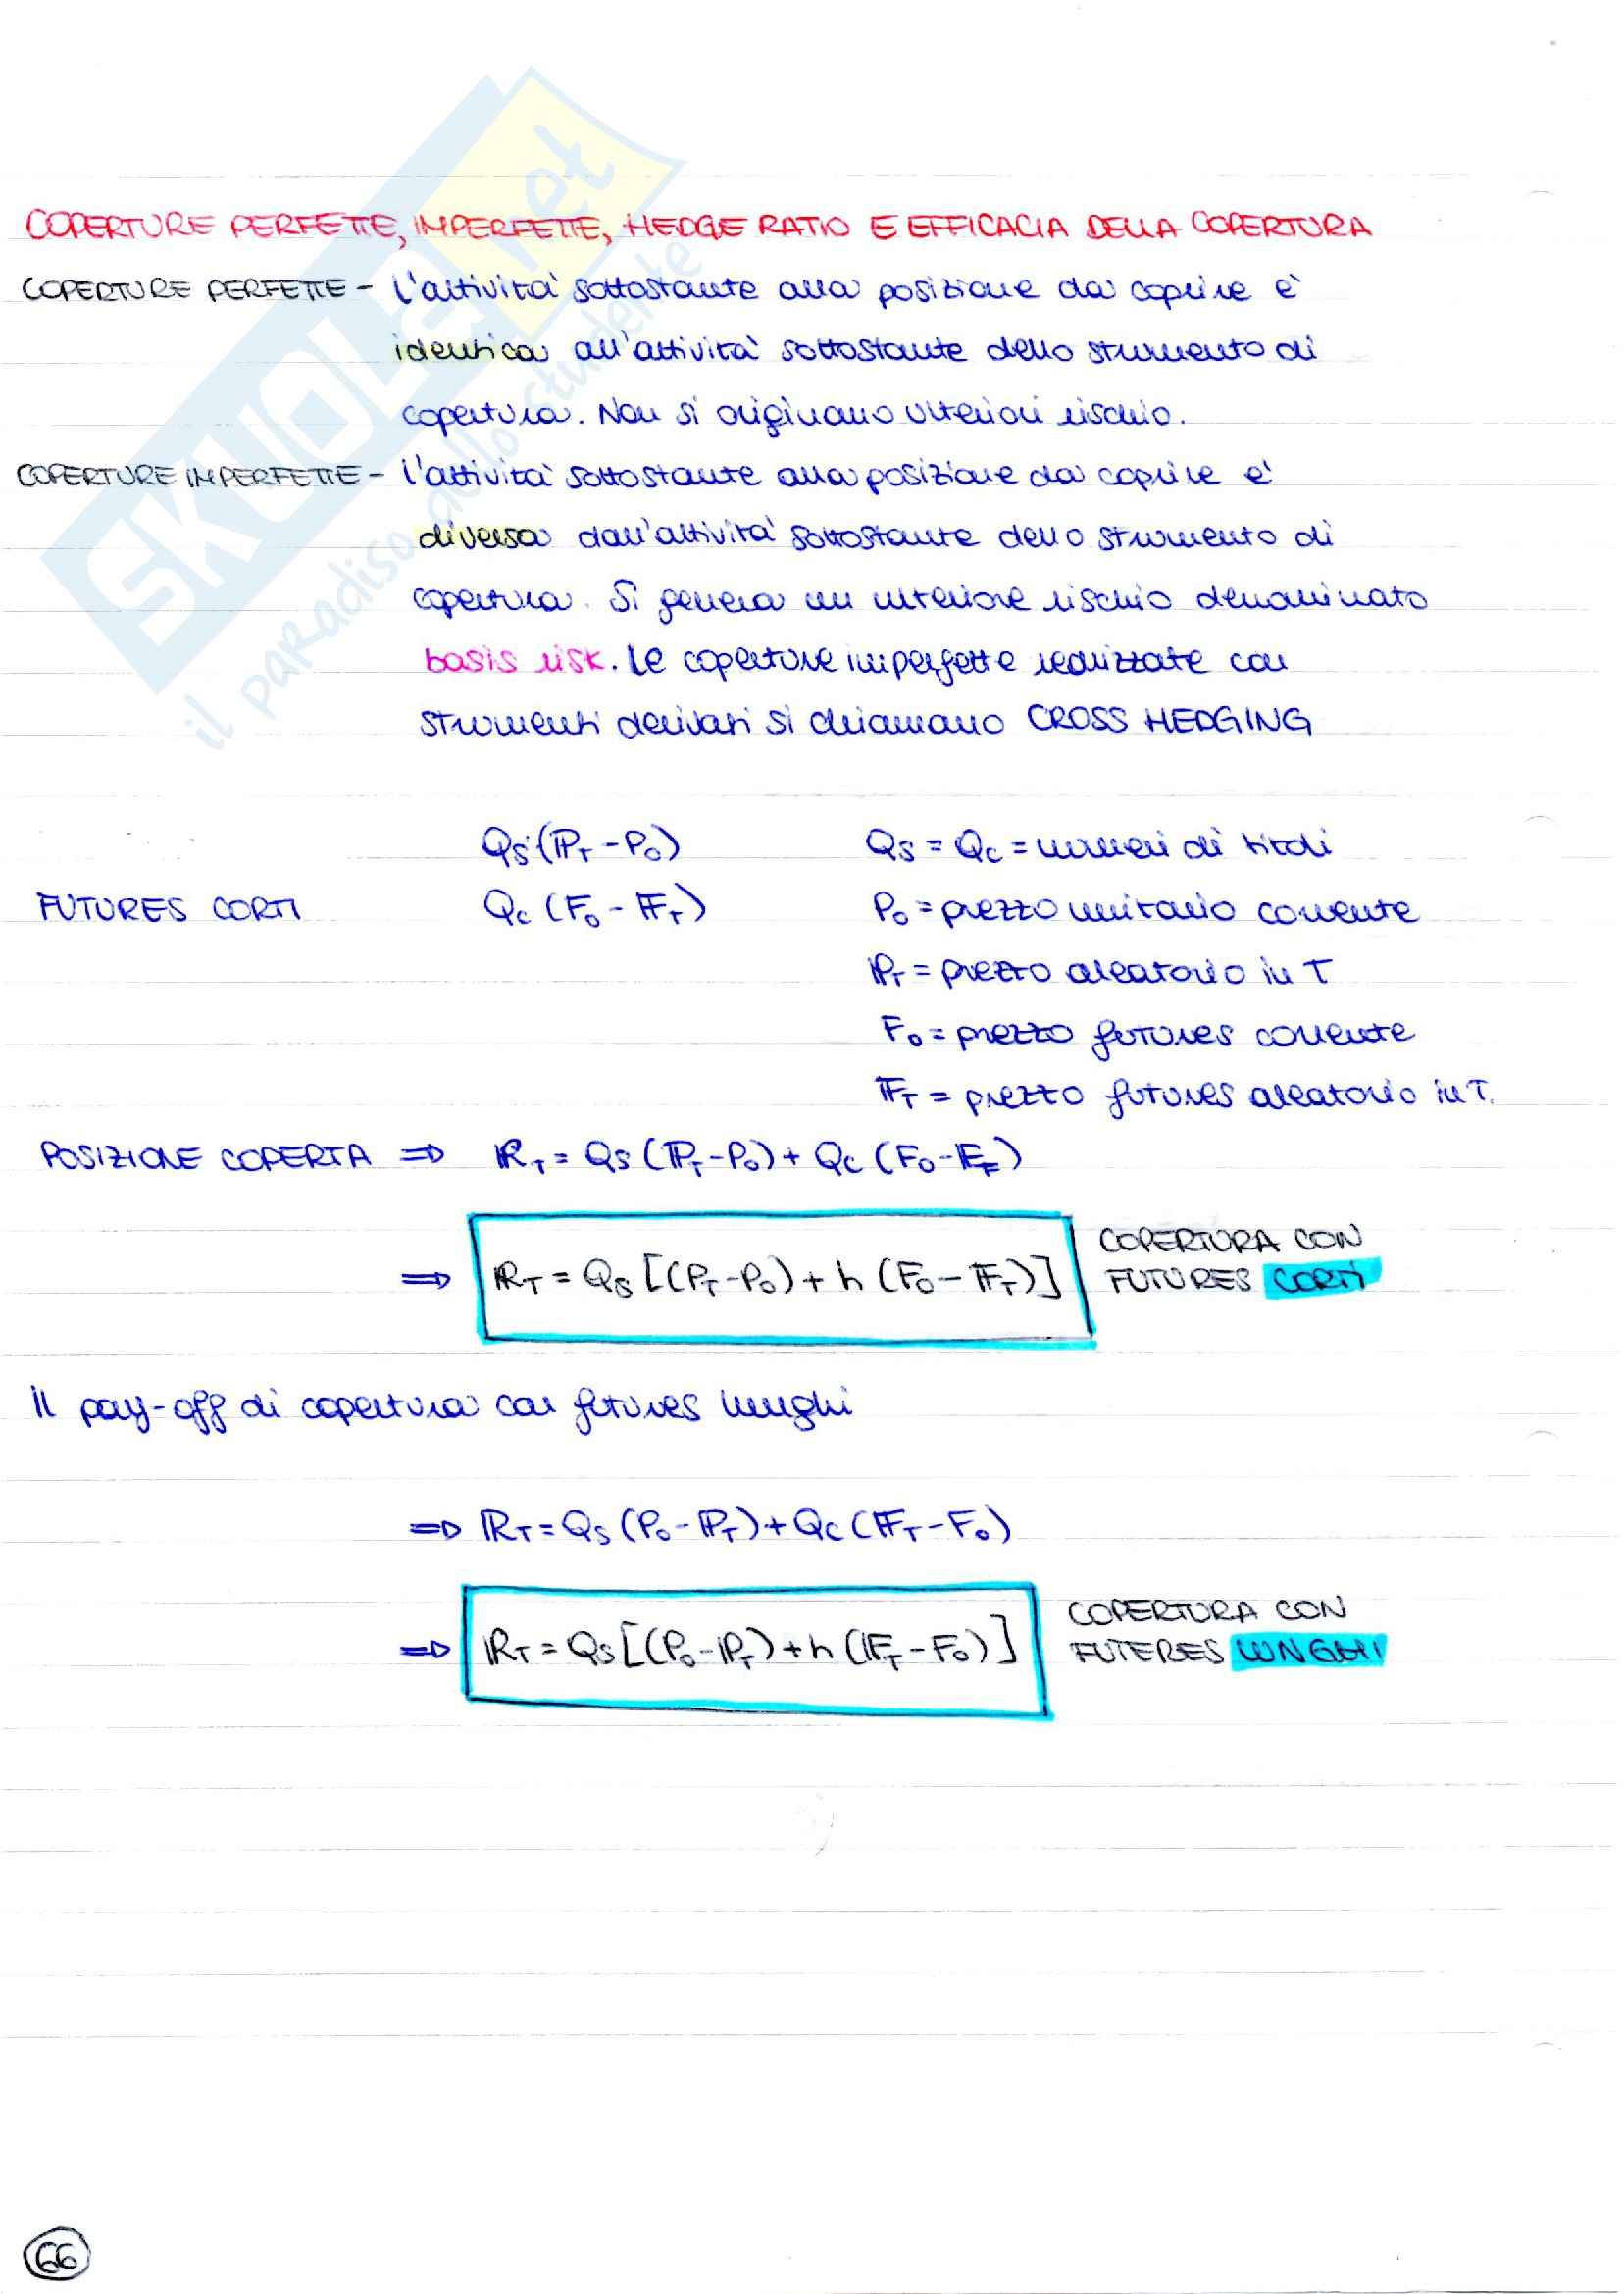 COPERTURE PERFETTE, IMPERFETTE, HEDGE RATIO E EFFICACIA DELLA COPERTURA
COPERTURE PERFETTE - L'attività sottostante alla posizione da coprire è
identica all'attività sottostante dello strumento di
copertura. Non si originano ulteriori rischio.
COPERTURE IMPERFETTE - L'attività sottostante alla posizione da coprire è
diversa dall'attività sottostante dello strumento di
copertura. Si genera un ulteriore rischio denominato
basis risk. Le coperture imperfette realizzate con
strumenti derivati si chiamano CROSS HEDGING
Qs·(ℙT - P0) Qs = Qc = numeri di titoli
FUTURES CORTI Qc (F0 - 𝔽T) P0 = prezzo unitario corrente
ℙT = prezzo aleatorio in T
F0 = prezzo futures corrente
𝔽T = prezzo futures aleatorio in T.
POSIZIONE COPERTA ⇒ ℝT = Qs (ℙT - P0) + Qc (F0 - 𝔽F)
⇒ ℝT = Qs [(PT - P0) + h (F0 - 𝔽T)] COPERTURA CON
FUTURES CORTI
Il pay-off di copertura con futures lunghi
⇒ ℝT = Qs (P0 - ℙT) + Qc (𝔽T - F0)
⇒ ℝT = Qs [(P0 - ℙT) + h (𝔽T - F0)] COPERTURA CON
FUTERES LUNGHI
66
SKUOLA.net
il paradiso dello studente